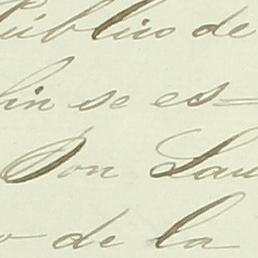 Público de
fin se es=
Don Lau
o de la